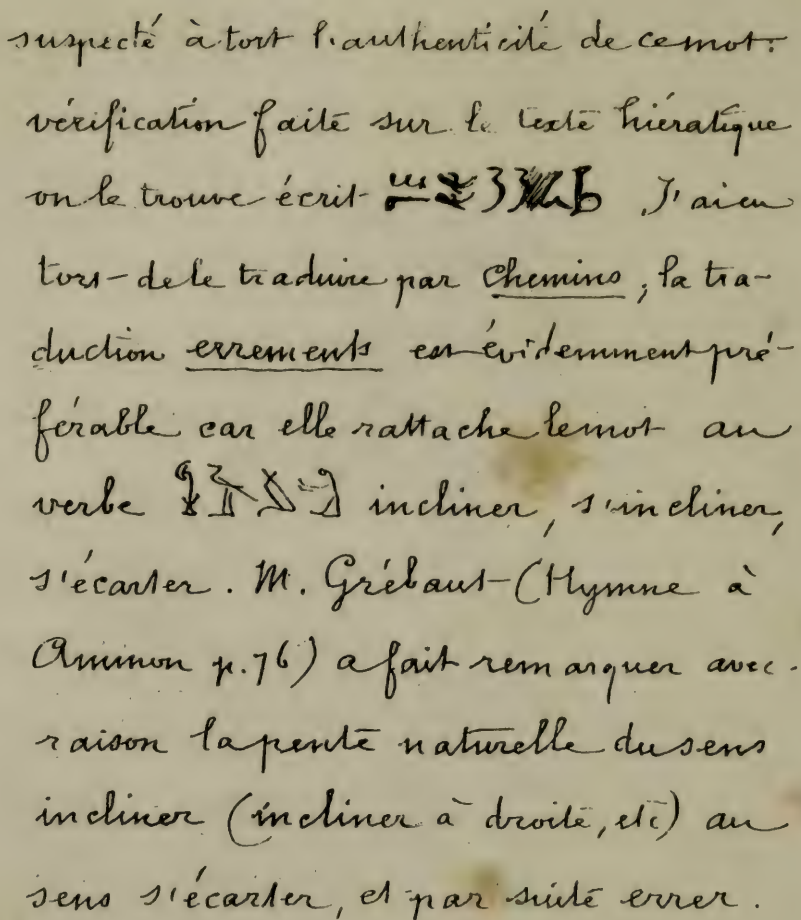 suspecté à tort l'authenticité de ce mot:
vérification faite sur le texte hiératique
on le trouve écrit J'ai eu
tort de le traduire par chemins, la tra-
duction errements est évidemment pré-
férable car elle rattache le mot au
verbe incliner, s'incliner,
s'écarter. M. Grébaut (Hymne à
Ammon p. 76) a fait remarquer avec
raison la pente naturelle du sens
incliner (incliner à droite, etc) au
sens s'écarter, et par suite errer.